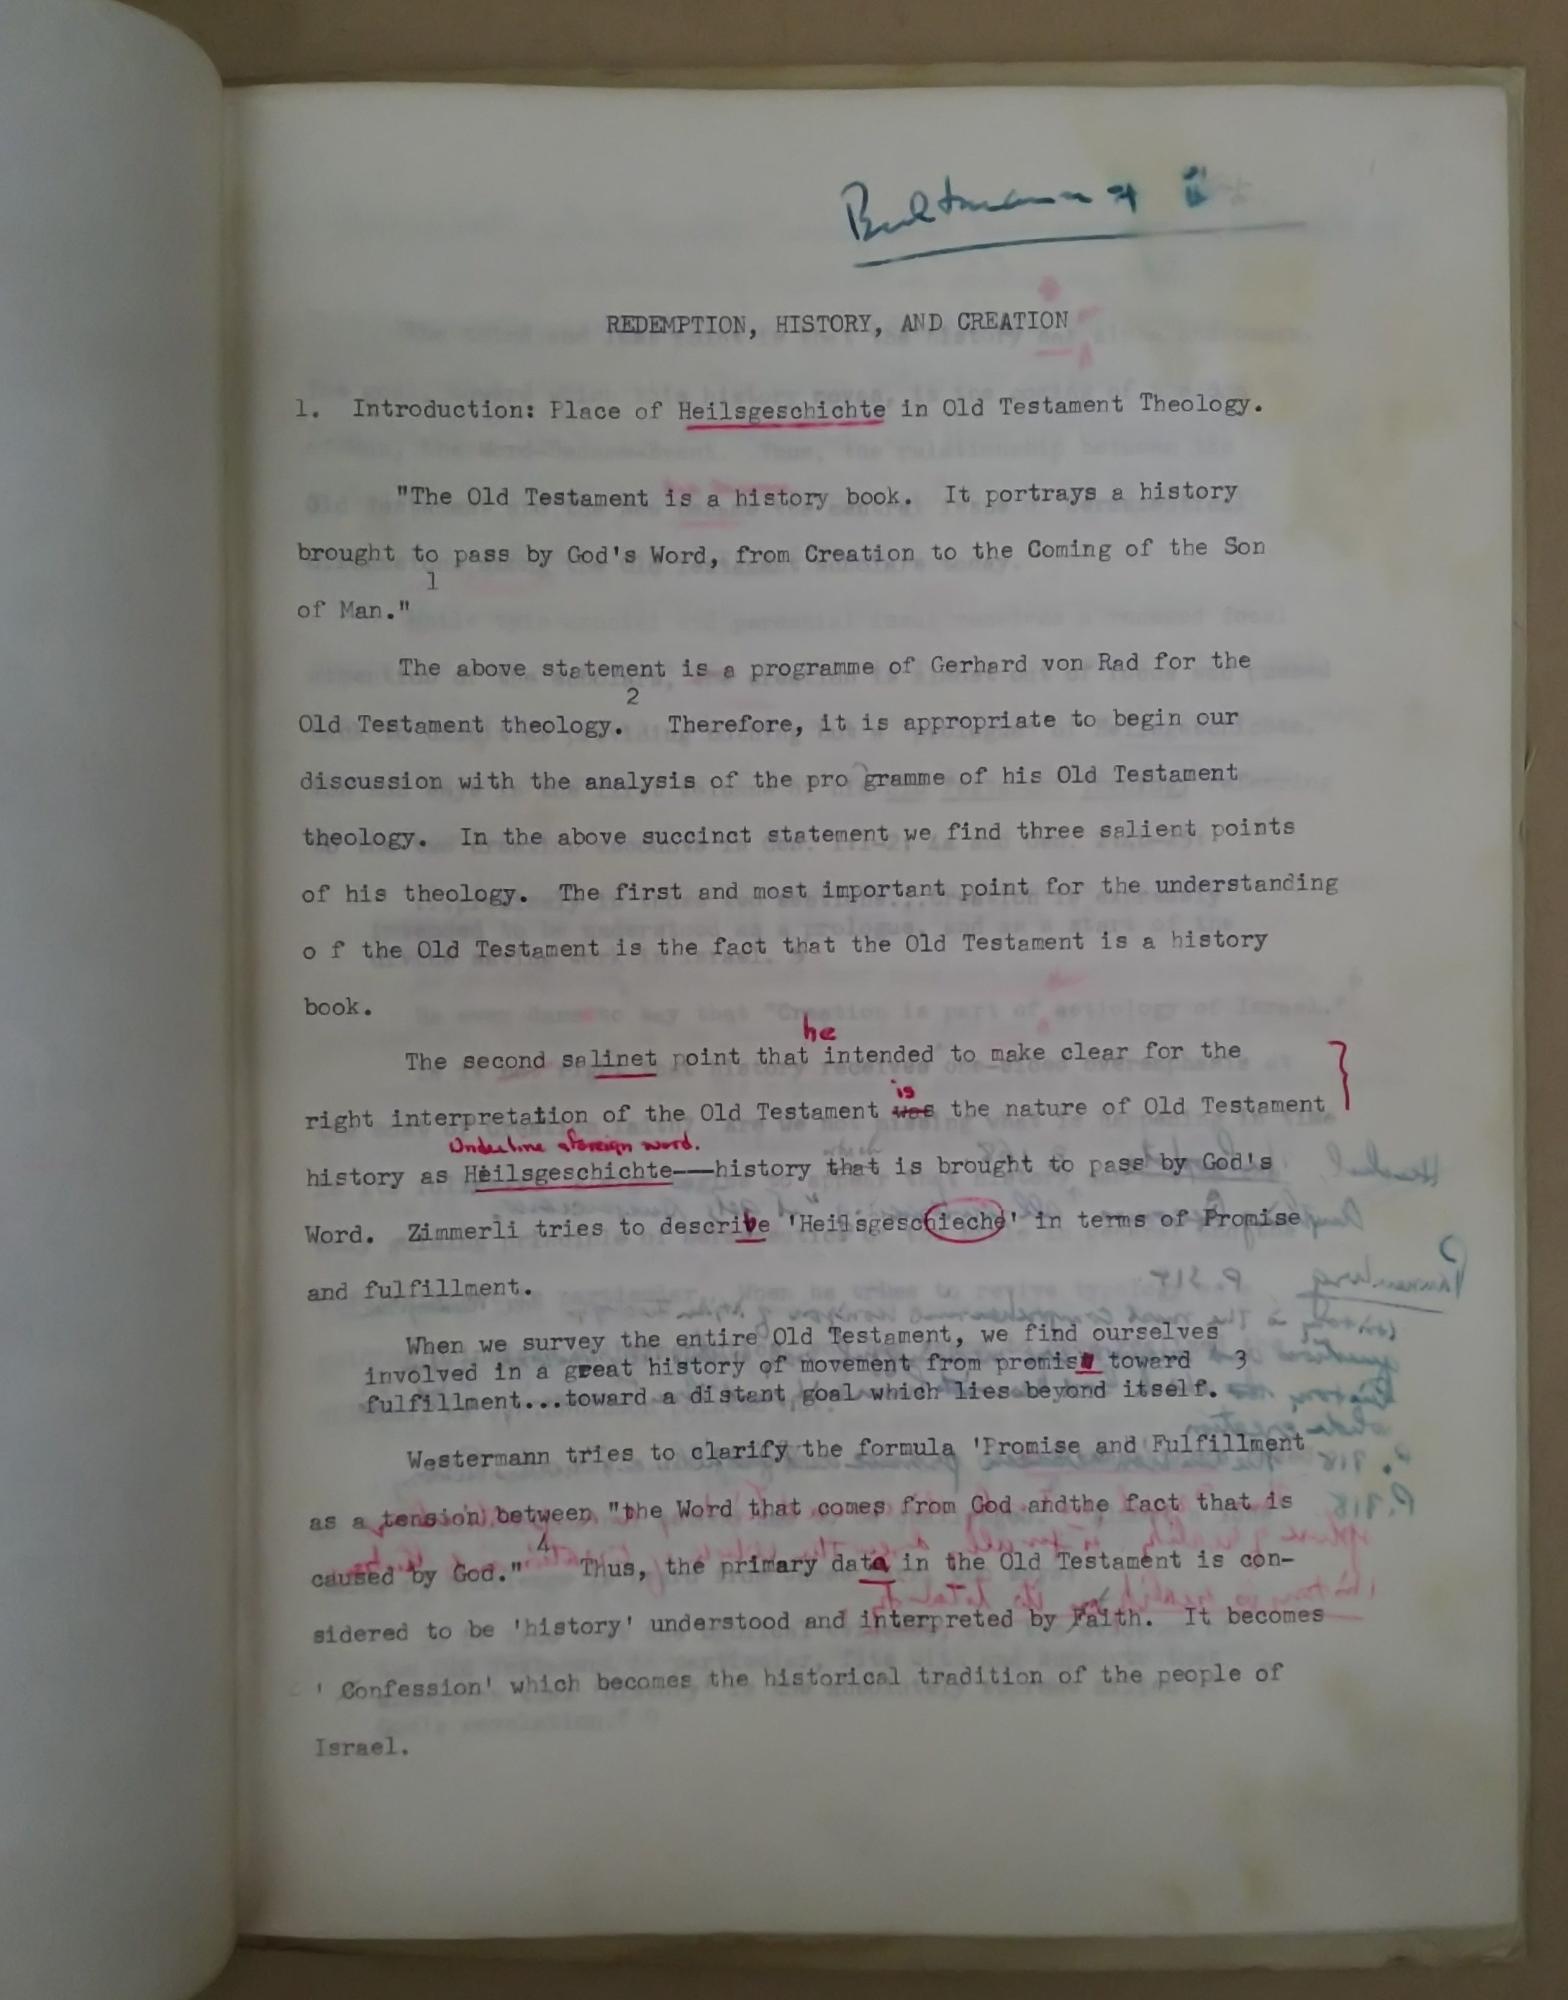 Bultmann
REDEMPTION, HISTORY, AND CREATION
1. Introduction: Place of Heilsgeschichte in Old Testament Theology.
"The Old Testament is a history book. It portrays a history
brought to pass by God's Word, from Creation to the Coming of the Son
of Man."1
The above statement is a programme of Gerhard von Rad for the
Old Testament theology.2 Therefore, it is appropriate to begin our
discussion with the analysis of the pro gramme of his Old Testament
theology. In the above succinct statement we find three salient points
of his theology. The first and most important point for the understanding
o f the Old Testament is the fact that the Old Testament is a history
book.
he
The second salinet point that intended to make clear for the
is
right interpretation of the Old Testament was the nature of Old Testament
Underline foreign word.
history as Heilsgeschichte---history that is brought to pass by God's
Word. Zimmerli tries to describe 'Heilsgeschieche' in terms of Promise
and fulfillment.
When we survey the entire Old Testament, we find ourselves
involved in a great history of movement from promise toward 3
fulfillment...toward a distant goal which lies beyond itself.
Westermann tries to clarify the formula 'Promise and Fulfillment
as a tension between "the Word that comes from God andthe fact that is
caused by God."4 Thus, the primary data in the Old Testament is con-
sidered to be 'history' understood and interpreted by Faith. It becomes
' Confession' which becomes the historical tradition of the people of
Israel.